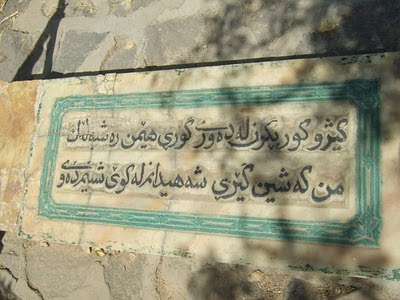 کیژو کوڕ بگرن لە دەوری گۆڕی هێمن ڕەشبەڵەک
من کە شین گێڕی شەهیدانم لە کوێ شینم دەوێ